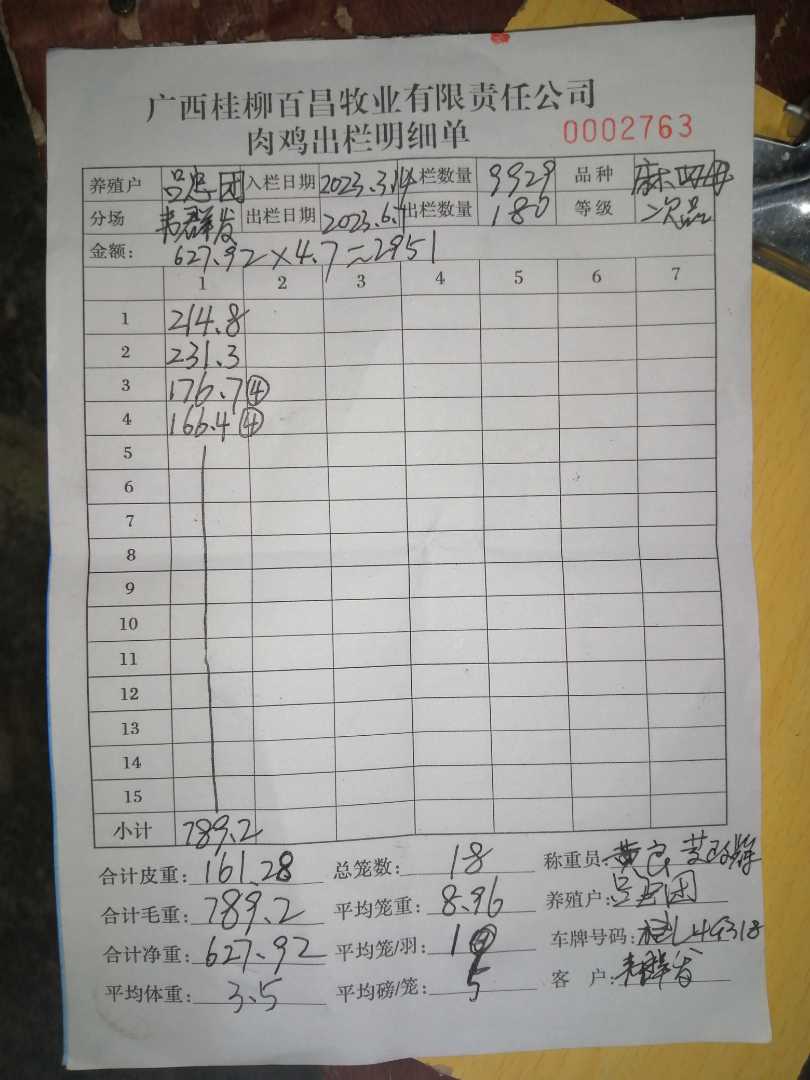 广西桂柳百昌牧业有限责任公司
肉鸡出栏明细单 0002763
养殖户 吕忠团 入栏日期 2023.3.14 栏数量 9929 品种 麻 母
分场 韦群发 出栏日期 2023.6.7 出栏数量 180 等级 次品
金额: 627.92×4.7=2951
1 2 3 4 5 6 7
1 214.8
2 231.3
3 176.7 ④
4 166.4 ④
5
6
7
8
9
10
11
12
13
14
15
小计 789.2
合计皮重: 161.28 总笼数: 18 称重员: 黄
合计毛重: 789.2 平均笼重: 8.96 养殖户: 吕忠团
合计净重: 627.92 平均笼/羽: 车牌号码: 桂L49318
平均体重: 3.5 平均磅/笼: 5 客 户: 韦群发